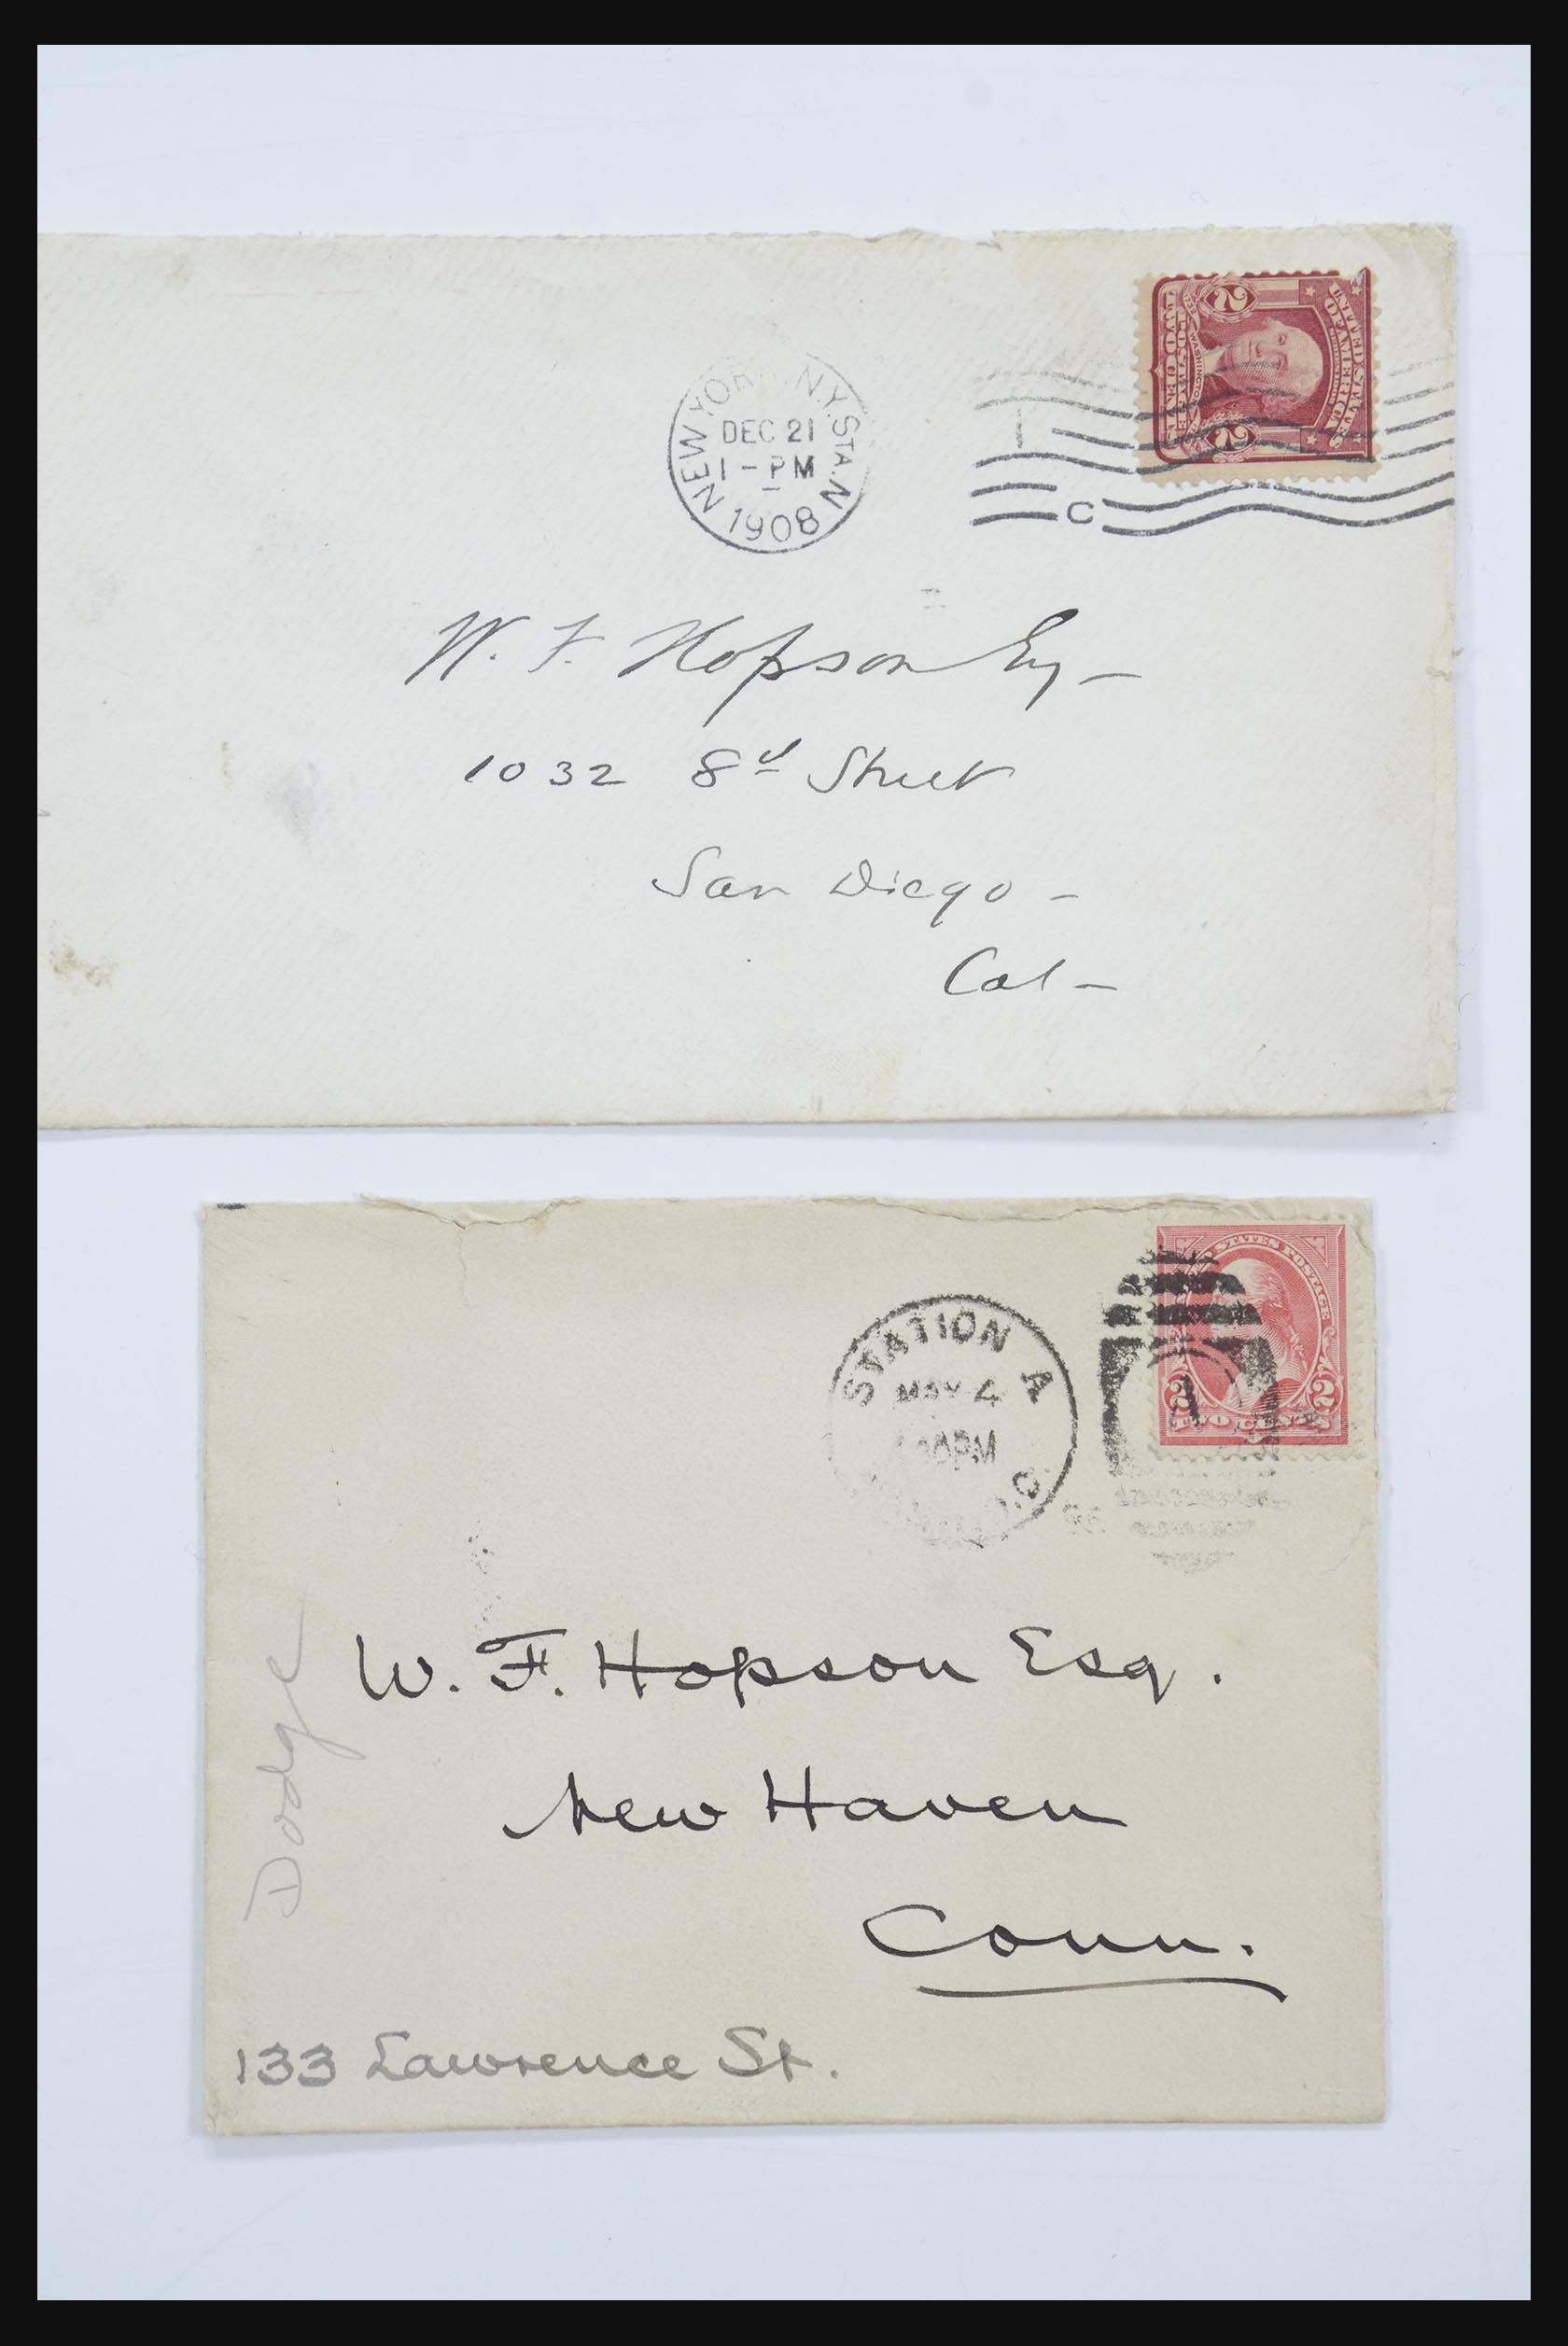 NEW YORK, N.Y. STA. N
DEC 21
1 - PM
1908
C
UNITED STATES
OF AMERICA
WASHINGTON
POSTAGE
TWO CENTS
2 2
W. F. Hopson Esq –
1032 8d Street
San Diego –
Cal –
STATION A
MAY 4
30PM
D.C.
1
STATES POSTAGE
2 2
TWO CENTS
W. F. Hopson Esq.
New Haven
Conn.
Dodge
133 Lawrence St.